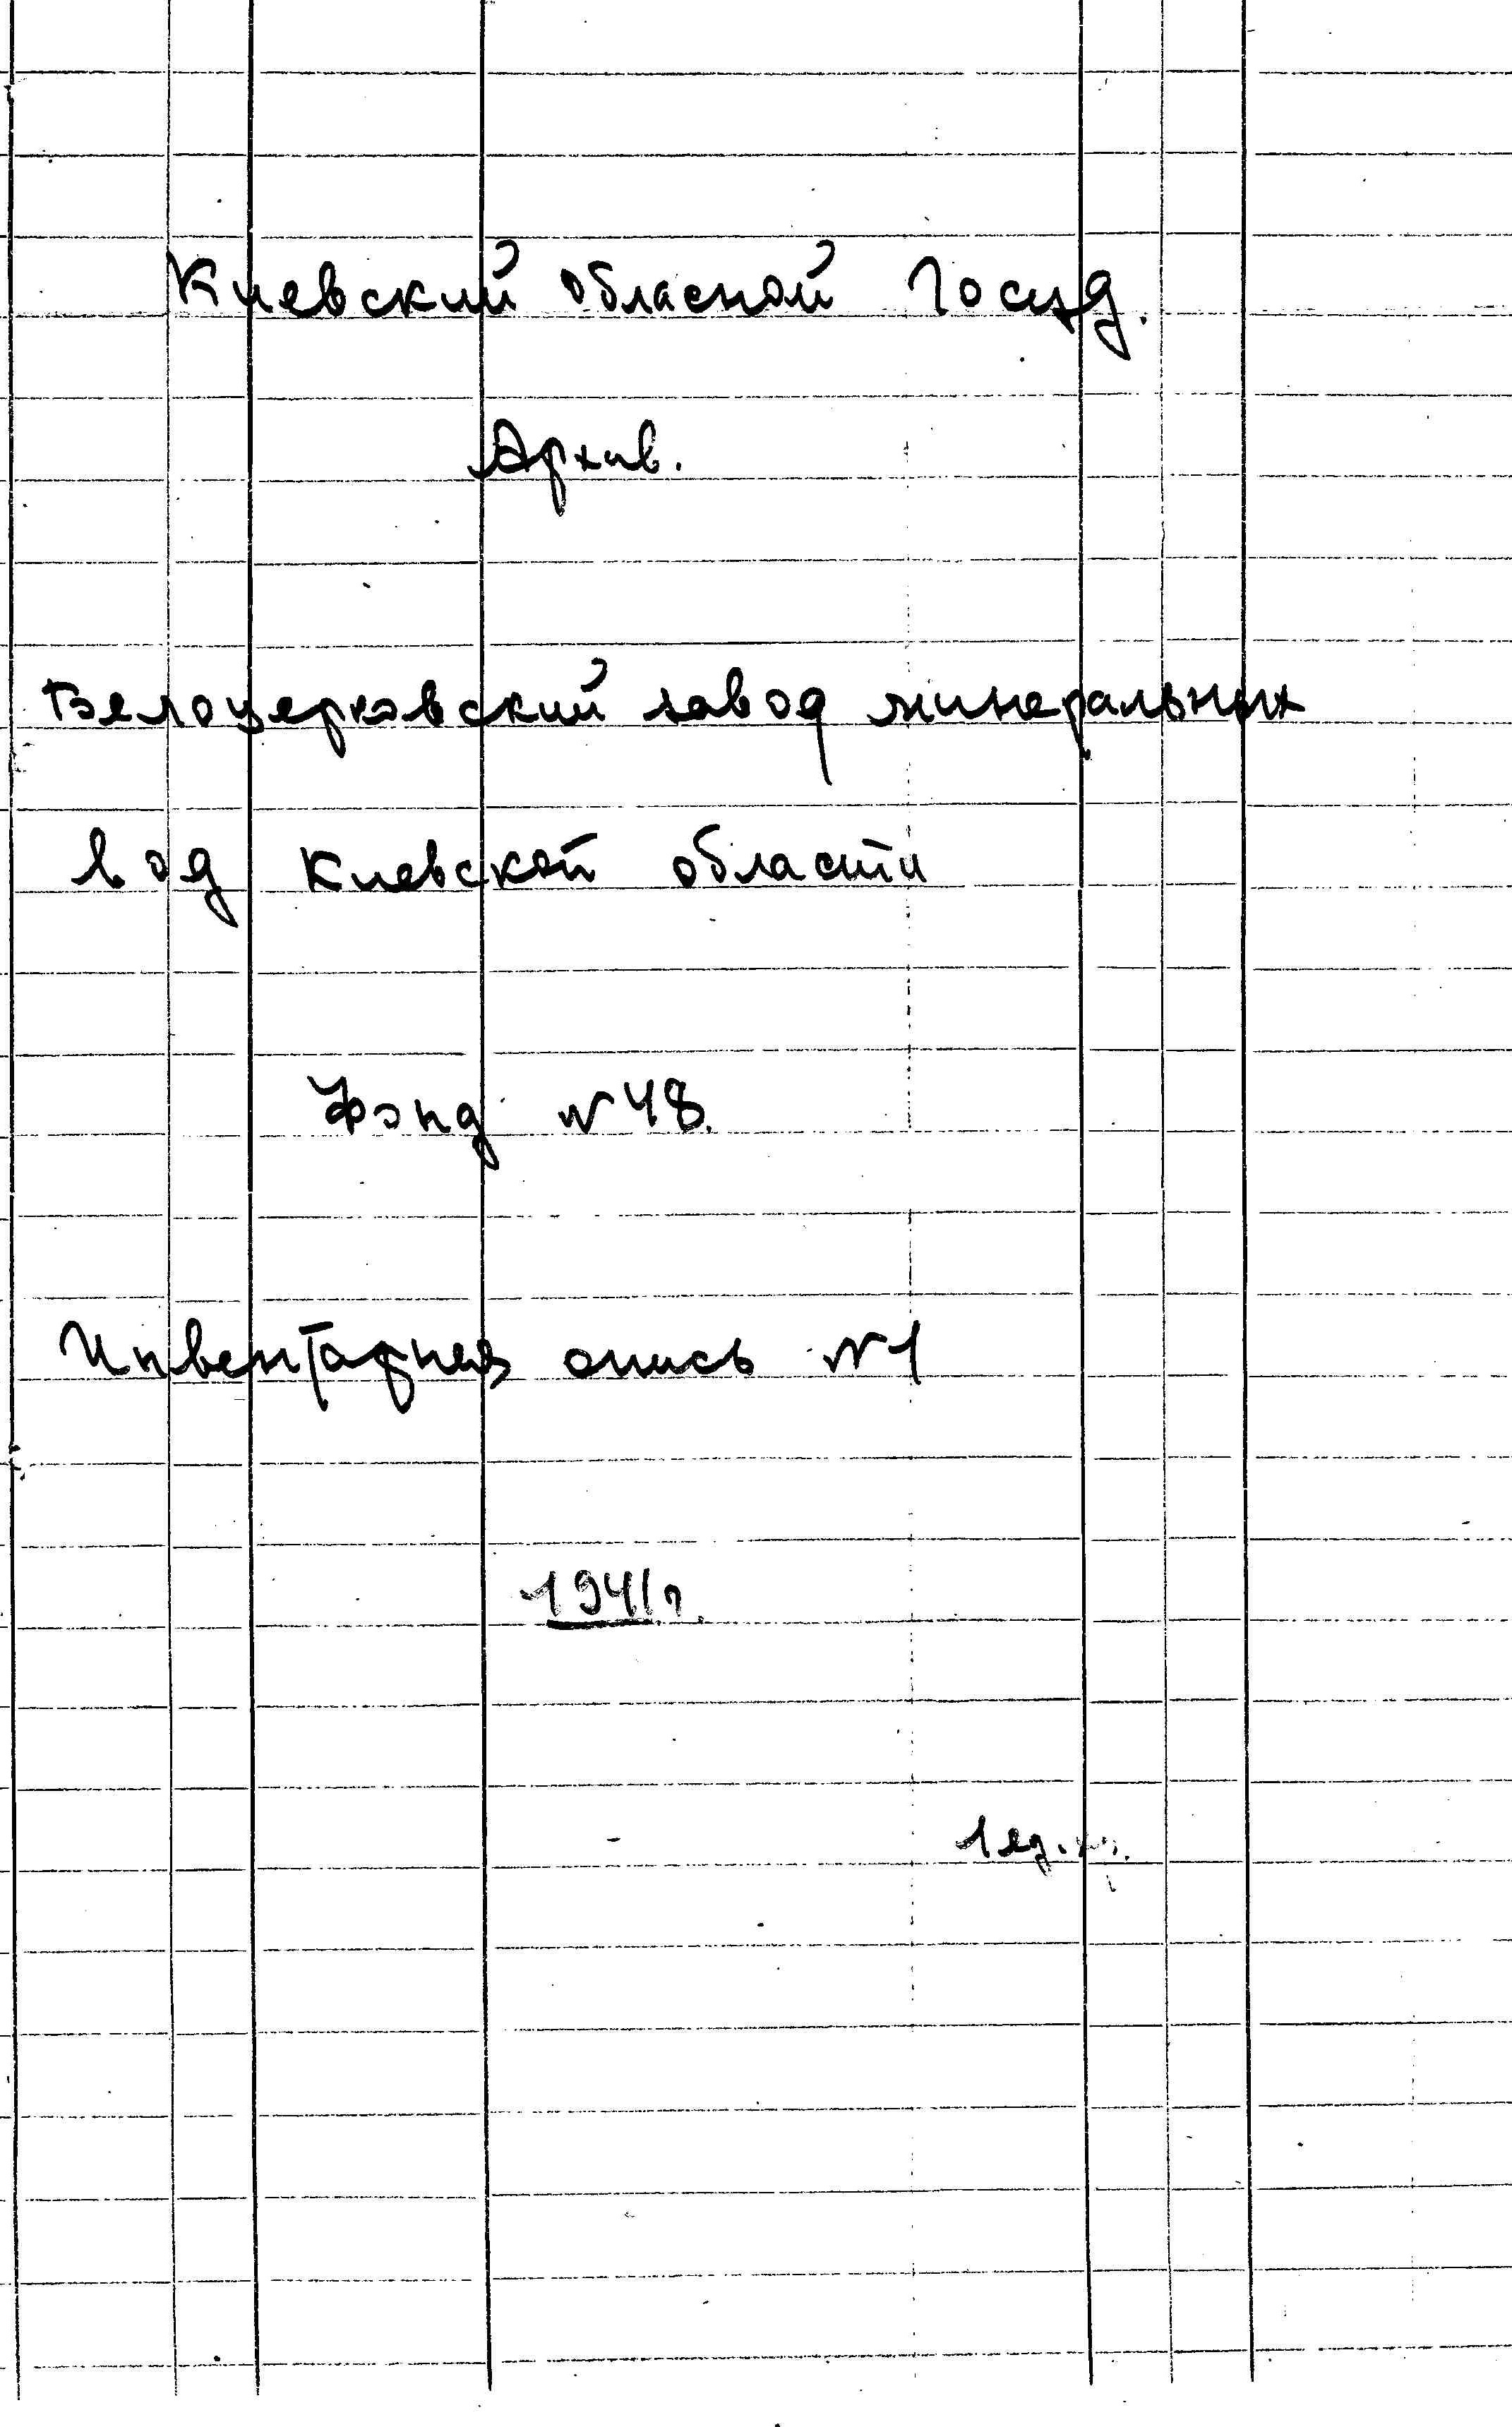 Киевский обласной Госуд.
Архив.
Белоцерковский завод минеральных
вод Киевской области
Фонд №48.
Инвентарная опись №1
1941г.
1 ед.